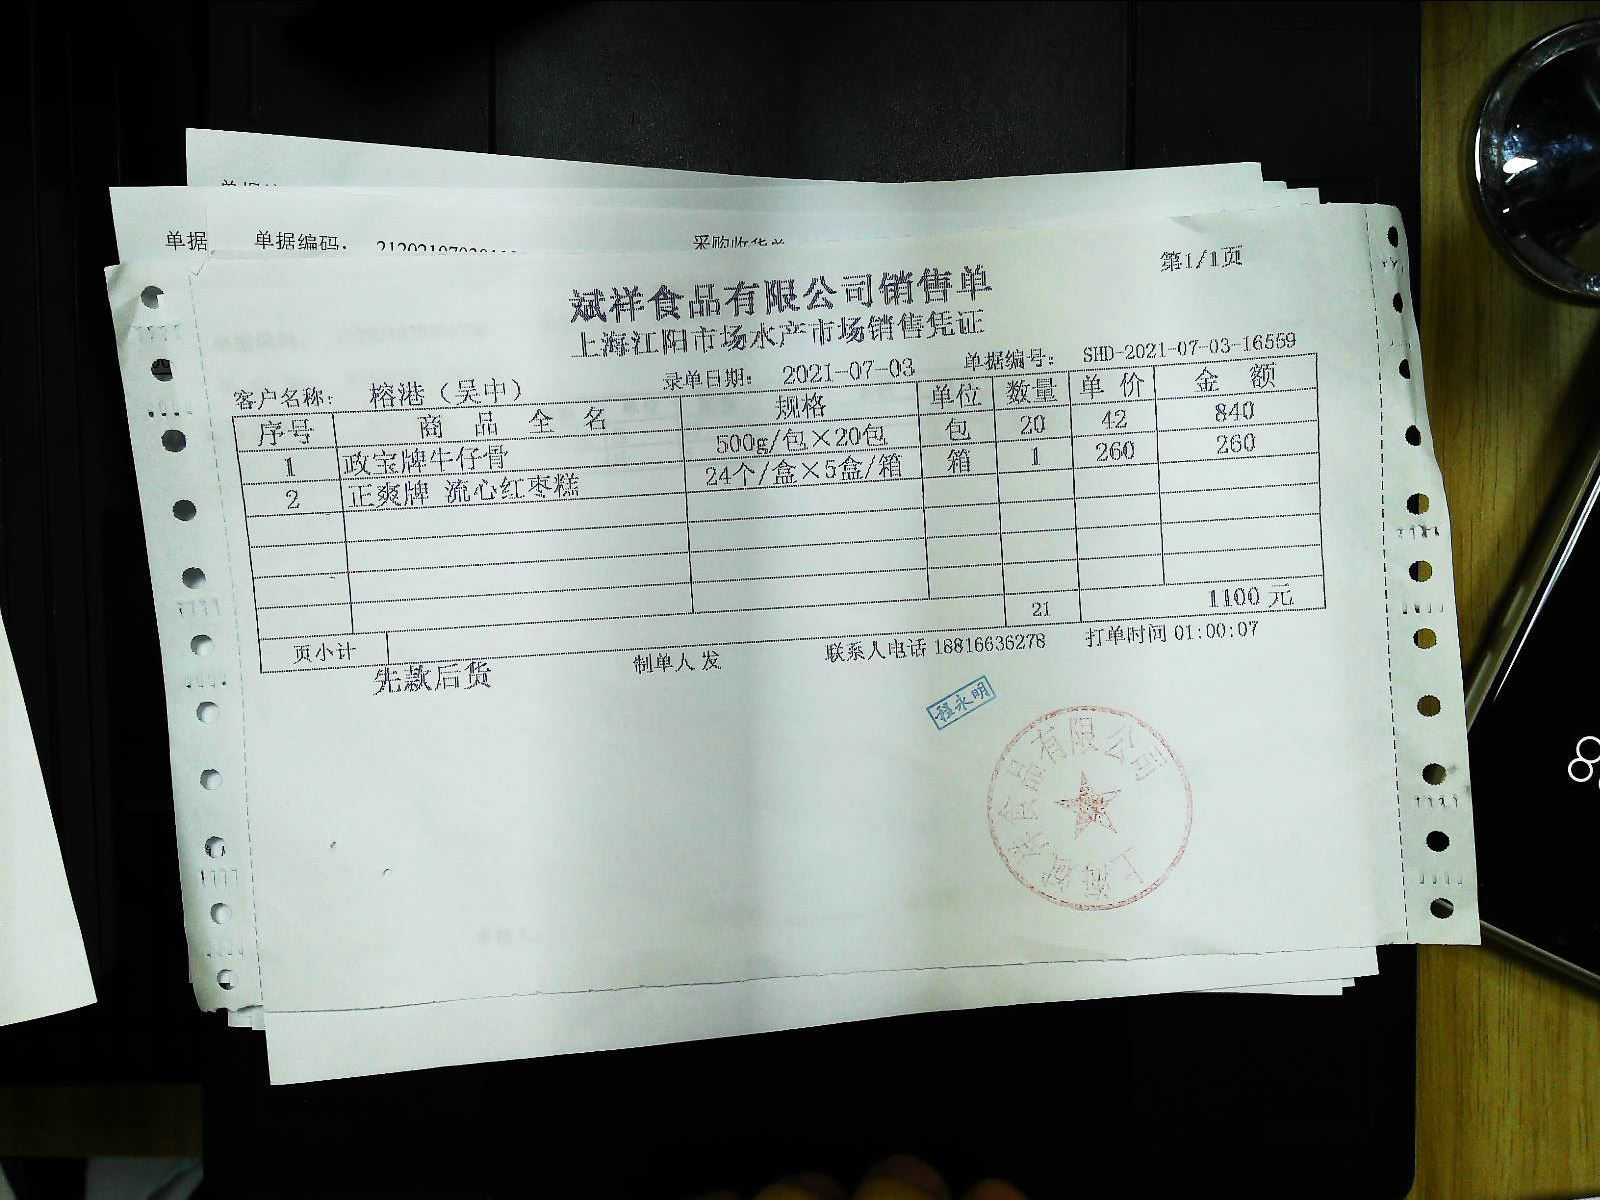 单据
单据编码：
采购收货单
第1/1页
斌祥食品有限公司销售单
上海江阳市场水产市场销售凭证
客户名称： 榕港（吴中） 录单日期： 2021-07-03 单据编号： SHD-2021-07-03-16559
序号 商品全名 规格 单位 数量 单价 金额
1 政宝牌牛仔骨 500g/包×20包 包 20 42 840
2 正爽牌 流心红枣糕 24个/盒×5盒/箱 箱 1 260 260
页小计 21 1100元
先款后货 制单人 发 联系人电话 18816636278 打单时间 01:00:07
程永明
上海斌祥食品有限公司